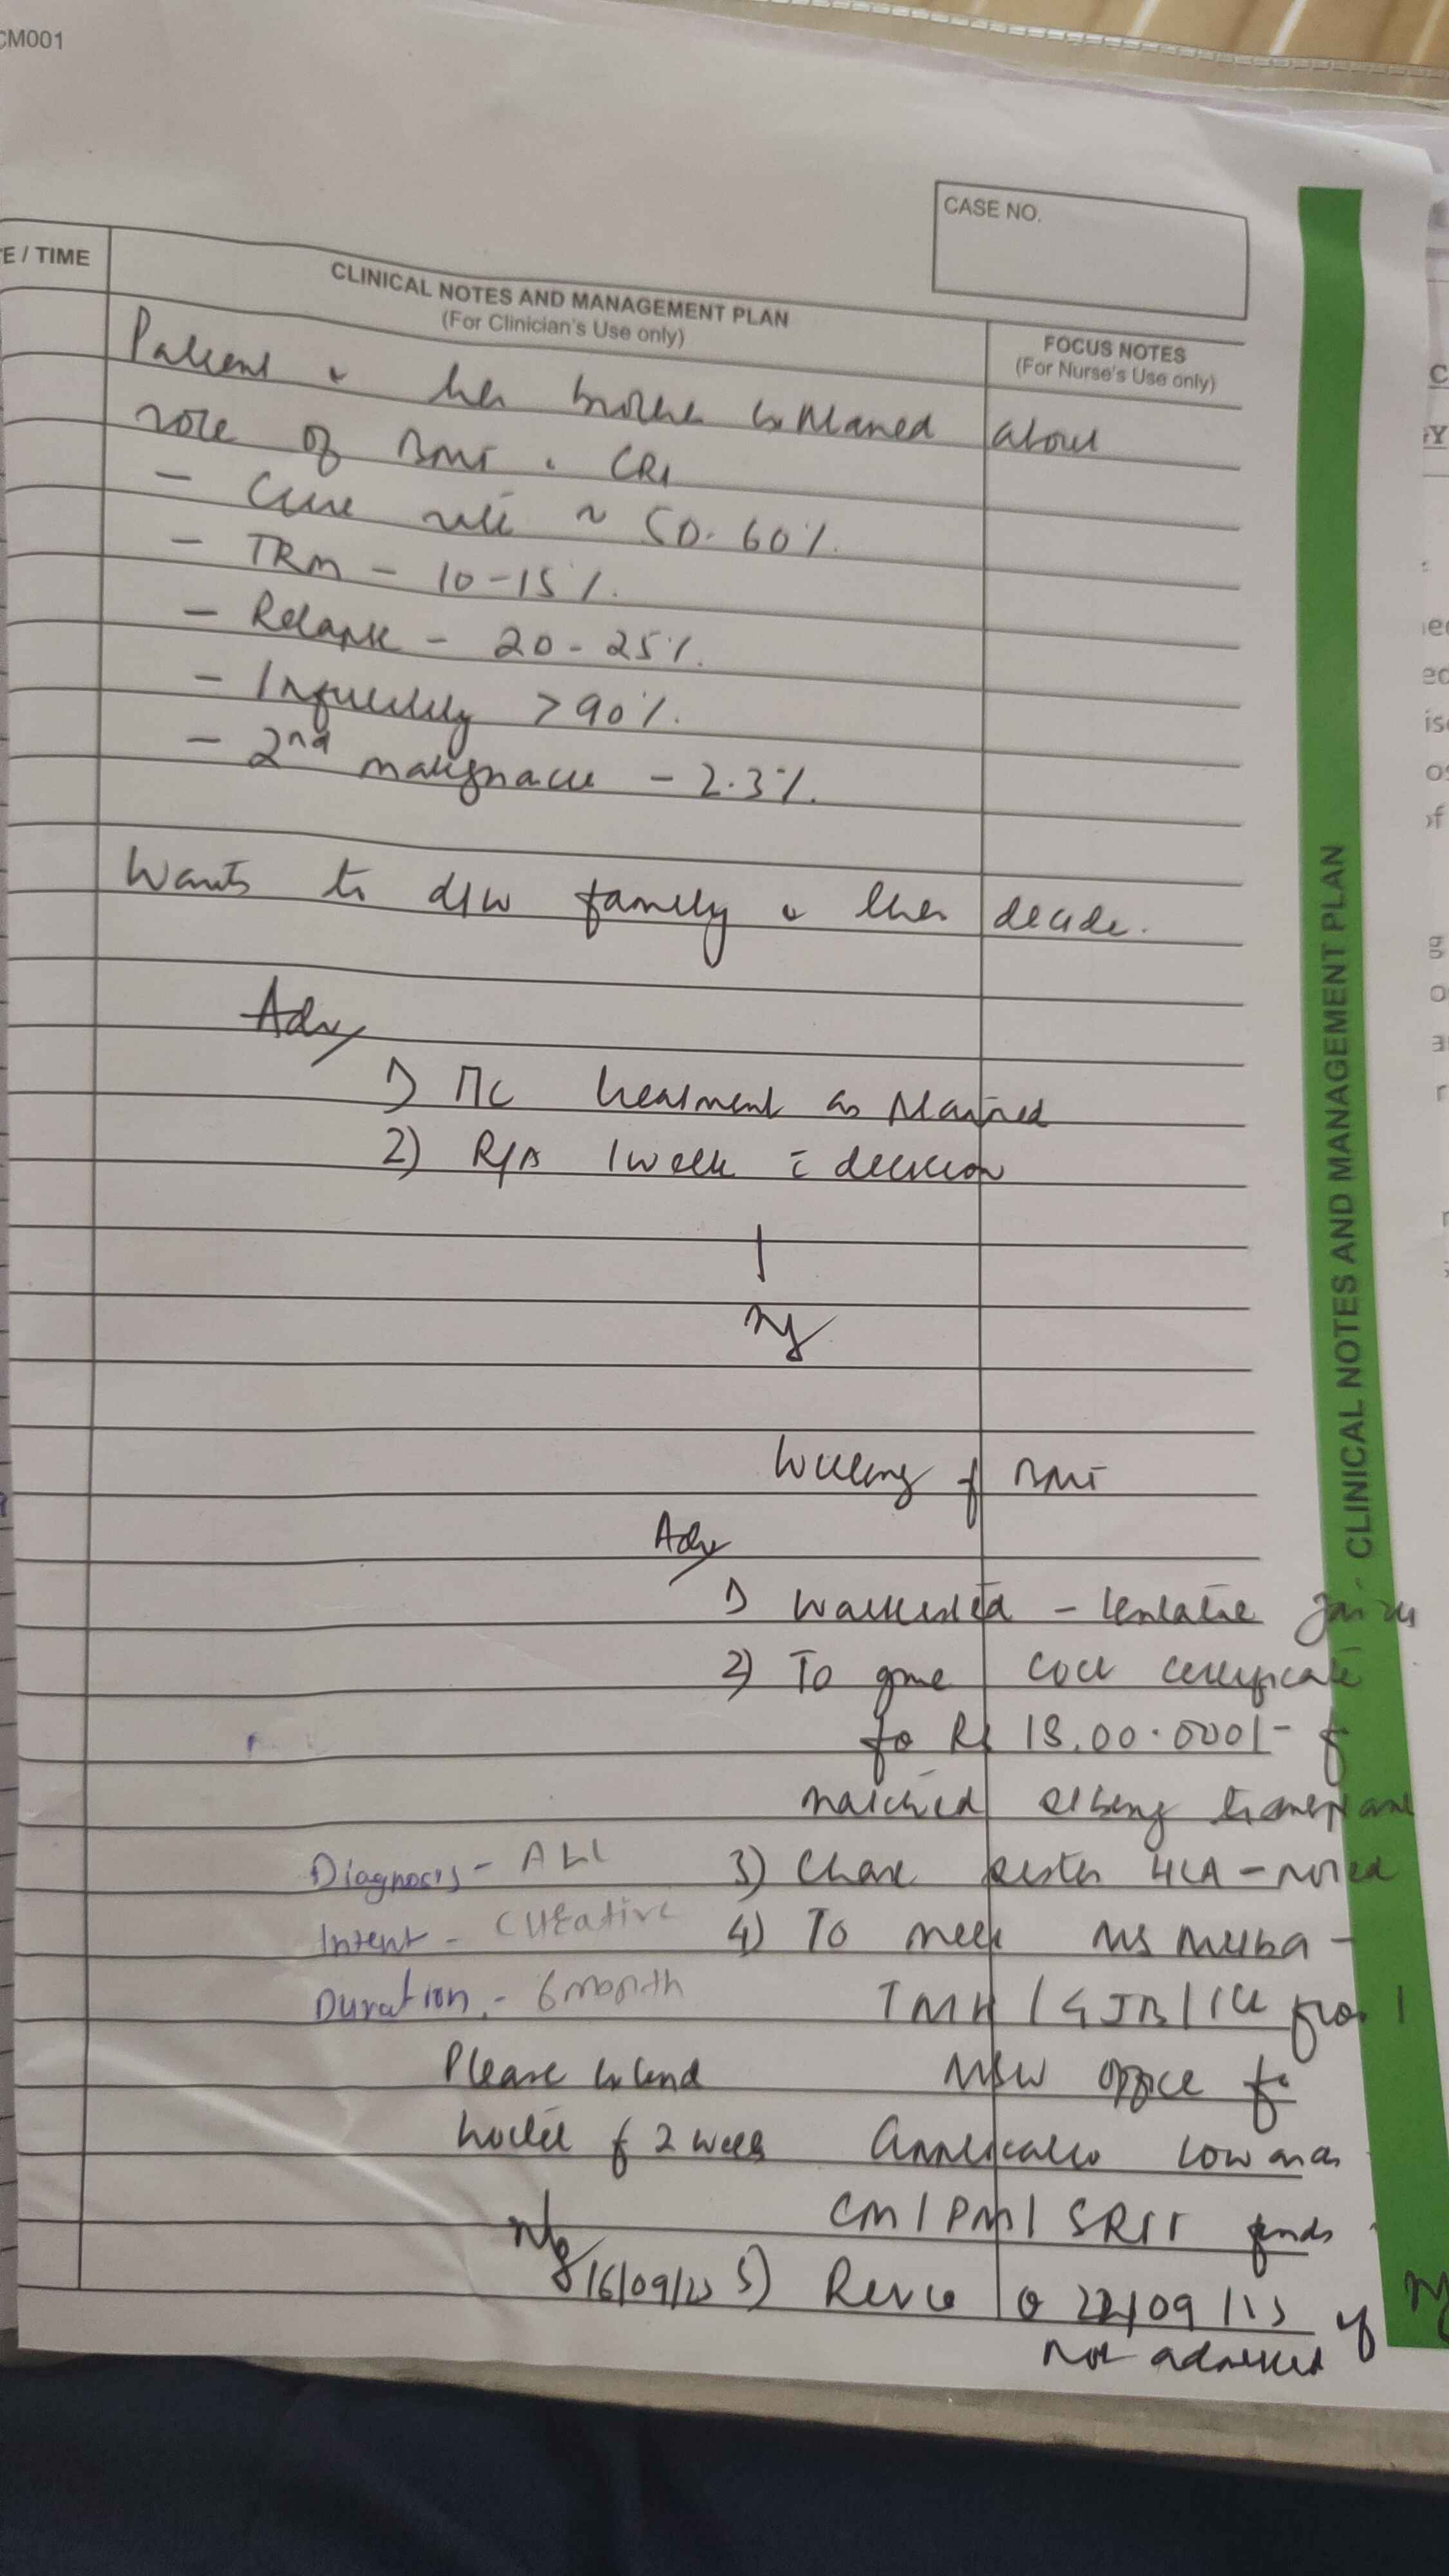 CM001
CASE NO.
E / TIME
CLINICAL NOTES AND MANAGEMENT PLAN
(For Clinician's Use only)
FOCUS NOTES
(For Nurse's Use only)
Patient & her brother explained about
role of BMT in CR1
- Cure rate ~ 50-60%.
- TRM - 10-15%.
- Relapse - 20-25%.
- Infertility >90%.
- 2nd malignancies - 2-3%.
Wants to d/w family & then decide.
Adv
1) treatment as planned
2) R/A 1 week c decision
Willing f BMT
Adv
1) Waitlisted - tentative Jan
2) To give cost certificate
for Rs 18,00,000/- f
matched sibling transplant
Diagnosis - ALL
3) Chase sister HLA - noted
Intent - Curative
4) To meet Ms
Duration - 6 month
TMH /
Please extend
MSW office for
hostel f 2 weeks
applications towards
CM / PM / funds
16/09/23
5) Review @ 22/09/23 if
not admitted
CLINICAL NOTES AND MANAGEMENT PLAN - CLINICAL NOTES AND MANAGEMENT PLAN